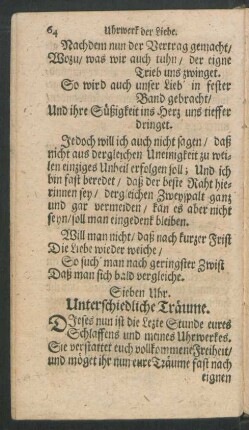 64 Uhrwerk der Liebe.
Nachdem nun der Vertrag gemacht/
Wozu/ was wir auch tuhn/ der eigne
Trieb uns zwinget.
So wird auch unser Lieb' in fester
Band gebracht/
Und ihre Süßigkeit ins Herz uns tieffer
dringet.
Jedoch will ich auch nicht sagen/ daß
nicht aus dergleichen Uneinigkeit zu wei-
len einziges Unheil erfolgen soll; Und ich
bin fast beredet/ daß der beste Raht hie-
rinnen sey/ dergleichen Zweyspalt ganz
und gar vermeiden/ kan es aber nicht
seyn/ soll man eingedenk bleiben.
Will man nicht/ daß nach kurzer Frist
Die Liebe wieder weiche/
So such' man nach geringster Zwist
Daß man sich bald vergleiche.
Sieben Uhr.
Unterschiedliche Träume.
DIeses nun ist die Lezte Stunde eures
Schlaffens und meines Uhrwerkes.
Sie verstattet euch vollkommene Freiheit/
und möget ihr nun eure Träume fast nach
eignen